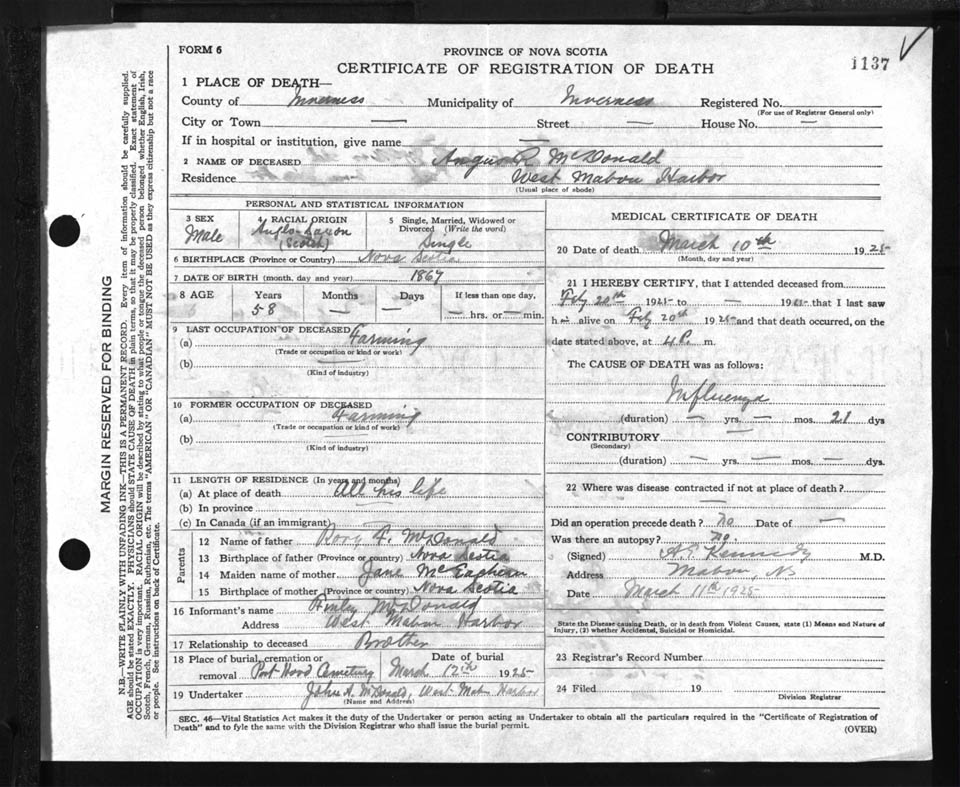 FORM 6
PROVINCE OF NOVA SCOTIA
CERTIFICATE OF REGISTRATION OF DEATH
1137
1 PLACE OF DEATH—
County of Inverness Municipality of Inverness Registered No.
(For use of Registrar General only)
City or Town — Street — House No. —
If in hospital or institution, give name —
2 NAME OF DECEASED Angus R. McDonald
Residence West Mabou Harbor
(Usual place of abode)
PERSONAL AND STATISTICAL INFORMATION
3 SEX Male
4 RACIAL ORIGIN Anglo-Saxon (Scotch)
5 Single, Married, Widowed or Divorced (Write the word) Single
6 BIRTHPLACE (Province or Country) Nova Scotia
7 DATE OF BIRTH (month, day and year) 1867
8 AGE Years Months Days If less than one day,
58 — — — hrs. or — min.
9 LAST OCCUPATION OF DECEASED
(a) Farming
(Trade or occupation or kind or work)
(b) —
(Kind of industry)
10 FORMER OCCUPATION OF DECEASED
(a) Farming
(Trade or occupation or kind of work)
(b) —
(Kind of industry)
11 LENGTH OF RESIDENCE (In years and months)
(a) At place of death All his life
(b) In province
(c) In Canada (if an immigrant) —
Parents
12 Name of father Rory A. McDonald
13 Birthplace of father (Province or country) Nova Scotia
14 Maiden name of mother Jane McEachern
15 Birthplace of mother (Province or country) Nova Scotia
16 Informant's name McDonald
Address West Mabou Harbor
17 Relationship to deceased Brother
18 Place of burial, cremation or removal Port Hood Cemetery Date of burial March 12th 1925
19 Undertaker John A. McDonald, West Mabou Harbor
(Name and Address)
MEDICAL CERTIFICATE OF DEATH
20 Date of death March 10th 1925
(Month, day and year)
21 I HEREBY CERTIFY, that I attended deceased from
Feby 20th 1925 to — 192 — that I last saw
him alive on Feby 20th 1925 and that death occurred, on the
date stated above, at 4 P. m.
The CAUSE OF DEATH was as follows:
Influenza
(duration) — yrs. — mos. 21 dys
CONTRIBUTORY —
(Secondary)
(duration) — yrs. — mos. — dys.
22 Where was disease contracted if not at place of death?
—
Did an operation precede death? no Date of —
Was there an autopsy? no.
(Signed) Kennedy M.D.
Address Mabou, NS
Date March 11th 1925
State the Disease causing Death, or in death from Violent Causes, state (1) Means and Nature of
Injury, (2) whether Accidental, Suicidal or Homicidal.
23 Registrar's Record Number
24 Filed 19
Division Registrar
SEC. 46—Vital Statistics Act makes it the duty of the Undertaker or person acting as Undertaker to obtain all the particulars required in the "Certificate of Registration of
Death" and to fyle the same with the Division Registrar who shall issue the burial permit.
(OVER)
MARGIN RESERVED FOR BINDING
N.B.—WRITE PLAINLY WITH UNFADING INK—THIS IS A PERMANENT RECORD. Every item of information should be carefully supplied.
AGE should be stated EXACTLY. PHYSICIANS should STATE CAUSE OF DEATH in plain terms, so that it may be properly classified. Exact statement of
OCCUPATION is very important. RACIAL ORIGIN will be described by stating to what people or tongue the deceased person belonged whether English, Irish,
Scotch, French, German, Russian, Ruthenian, etc. The terms "AMERICAN" OR "CANADIAN" MUST NOT BE USED as they express citizenship but not a race
or people. See instructions on back of Certificate.